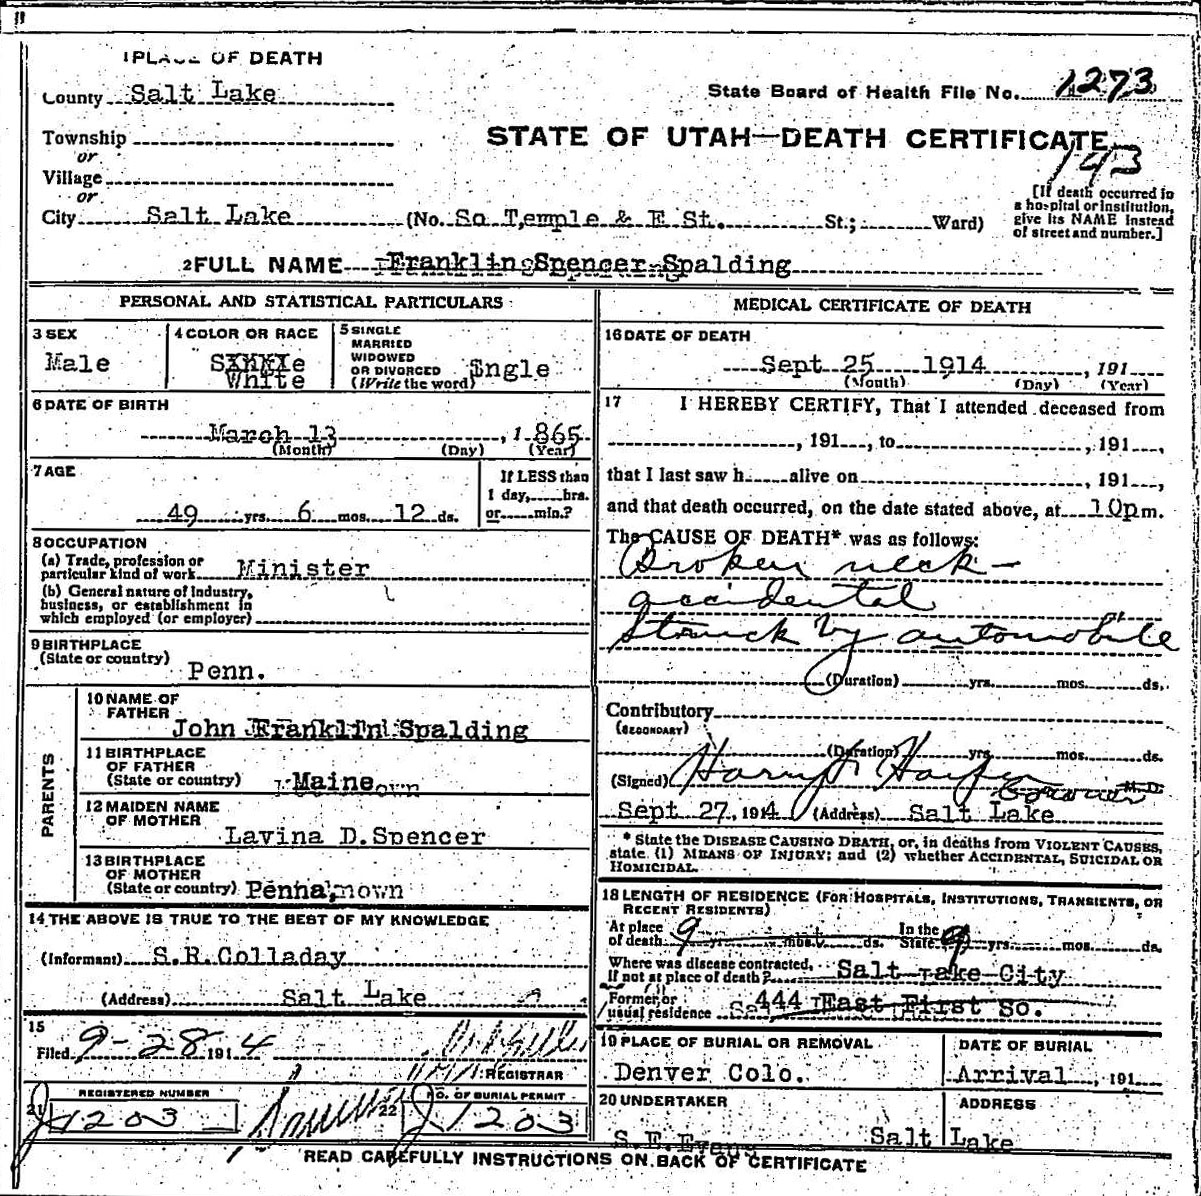 1 PLACE OF DEATH
County Salt Lake
State Board of Health File No. 1273
Township
STATE OF UTAH—DEATH CERTIFICATE
143
or
Village
or
City Salt Lake (No. So Temple & E St. St.; Ward)
[If death occurred in
a hospital or institution,
give its NAME instead
of street and number.]
2 FULL NAME Franklin Spencer Spalding
PERSONAL AND STATISTICAL PARTICULARS
3 SEX
Male
4 COLOR OR RACE
White
5 SINGLE
MARRIED
WIDOWED
OR DIVORCED
(Write the word)
Single
6 DATE OF BIRTH
March 13, 1865
(Month) (Day) (Year)
7 AGE
49 yrs. 6 mos. 12 ds.
If LESS than
1 day, hrs.
or min.?
8 OCCUPATION
(a) Trade, profession or
particular kind of work Minister
(b) General nature of industry,
business, or establishment in
which employed (or employer)
9 BIRTHPLACE
(State or country)
Penn.
PARENTS
10 NAME OF
FATHER
John Franklin Spalding
11 BIRTHPLACE
OF FATHER
(State or country) Maine
12 MAIDEN NAME
OF MOTHER
Lavina D. Spencer
13 BIRTHPLACE
OF MOTHER
(State or country) Penna,
14 THE ABOVE IS TRUE TO THE BEST OF MY KNOWLEDGE
(Informant) S.R. Colladay
(Address) Salt Lake
15
Filed 9-28 1914
REGISTRAR
REGISTERED NUMBER
21 1203
22 NO. OF BURIAL PERMIT
1203
MEDICAL CERTIFICATE OF DEATH
16 DATE OF DEATH
Sept 25 1914, 191
(Month) (Day) (Year)
17 I HEREBY CERTIFY, That I attended deceased from
, 191 , to , 191 ,
that I last saw h alive on , 191 ,
and that death occurred, on the date stated above, at 10 pm.
The CAUSE OF DEATH* was as follows:
Broken neck -
accidental
Struck by automobile
(Duration) yrs. mos. ds.
Contributory
(SECONDARY)
(Duration) yrs. mos. ds.
(Signed) Harry Coroner M.D.
Sept 27, 1914 (Address) Salt Lake
* State the DISEASE CAUSING DEATH, or, in deaths from VIOLENT CAUSES,
state (1) MEANS OF INJURY; and (2) whether ACCIDENTAL, SUICIDAL OR
HOMICIDAL.
18 LENGTH OF RESIDENCE (FOR HOSPITALS, INSTITUTIONS, TRANSIENTS, OR
RECENT RESIDENTS)
At place In the
of death 9 yrs. mos. ds. State 9 yrs. mos. ds.
Where was disease contracted,
If not at place of death? Salt Lake City
Former or
usual residence 444 East First So.
19 PLACE OF BURIAL OR REMOVAL
Denver Colo.
DATE OF BURIAL
Arrival, 191
20 UNDERTAKER
S.E. Evans
ADDRESS
Salt Lake
READ CAREFULLY INSTRUCTIONS ON BACK OF CERTIFICATE